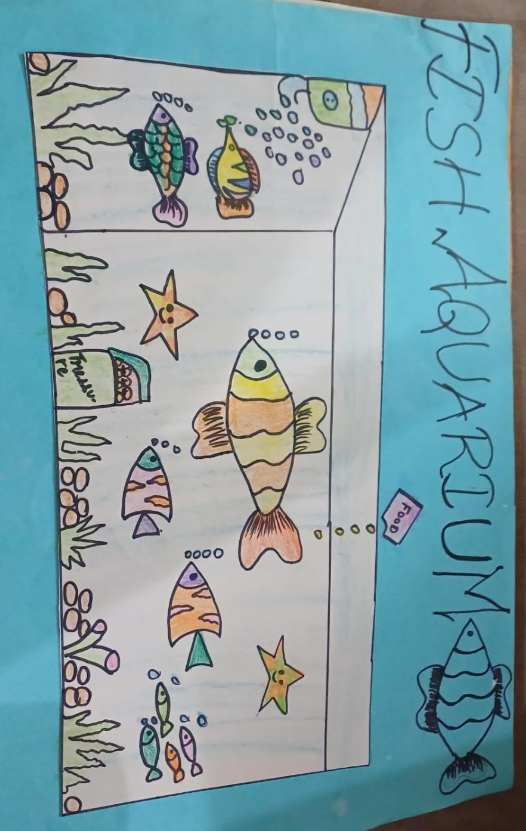 FISH AQUARIUM
FOOD
Treasu-
re